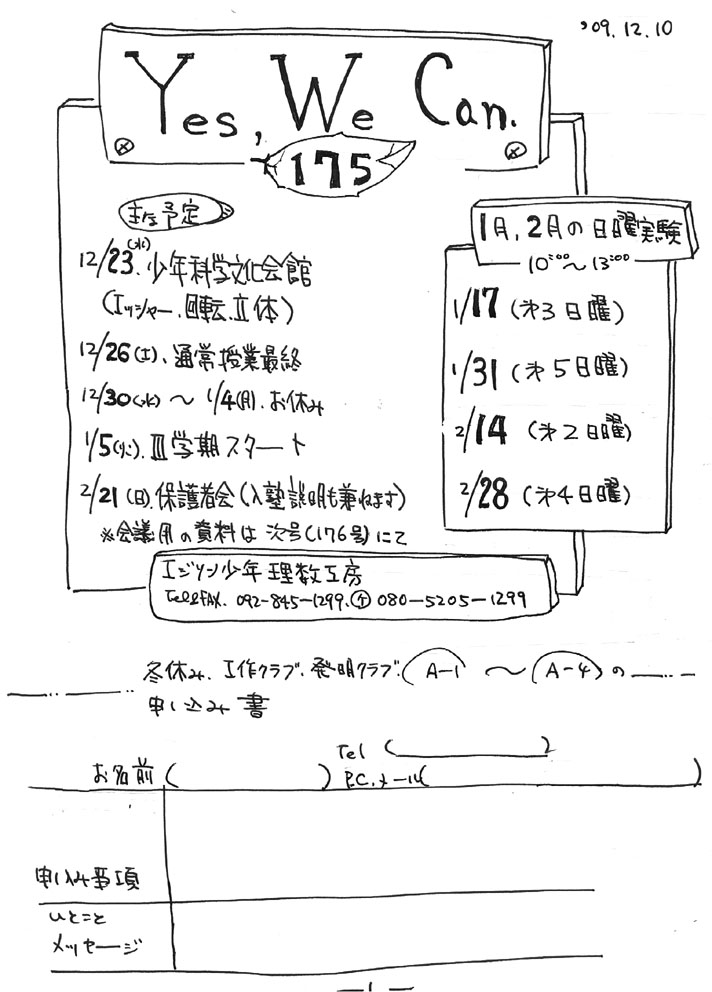 '09.12.10
Yes, We Can.
175
主な予定
12/23(水).少年科学文化会館
(エッシャー.回転.立体)
12/26(土).通常授業最終
12/30(水)～1/4(月).お休み
1/5(火).Ⅲ学期スタート
2/21(日).保護者会(入塾説明も兼ねます)
※会議用の資料は次号(176号)にて
1月,2月の日曜実験
10:00～13:00
1/17(第3日曜)
1/31(第5日曜)
2/14(第2日曜)
2/28(第4日曜)
エジソン少年理数工房
Tel&FAX. 092-845-1299.㋘080-5205-1299
冬休み.工作クラブ.発明クラブ.(A-1～A-4)の
申し込み書
お名前( )
Tel ( )
P.C.メール( )
申し込み事項
ひとこと
メッセージ
-1-